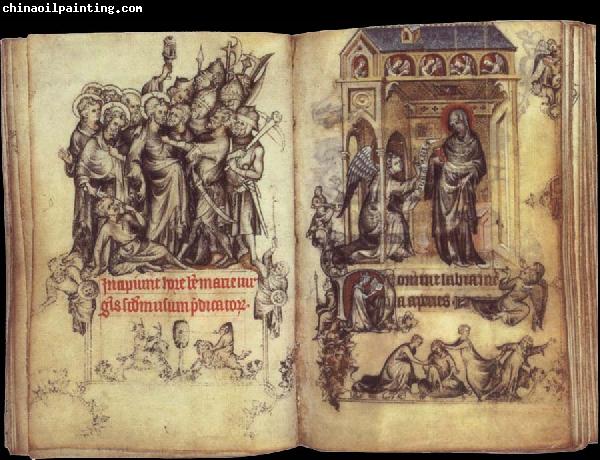 chinaoilpainting.com
Incipiunt hore be marie uir
gis scdm usum pdicator.
Domine labia me
a aperies